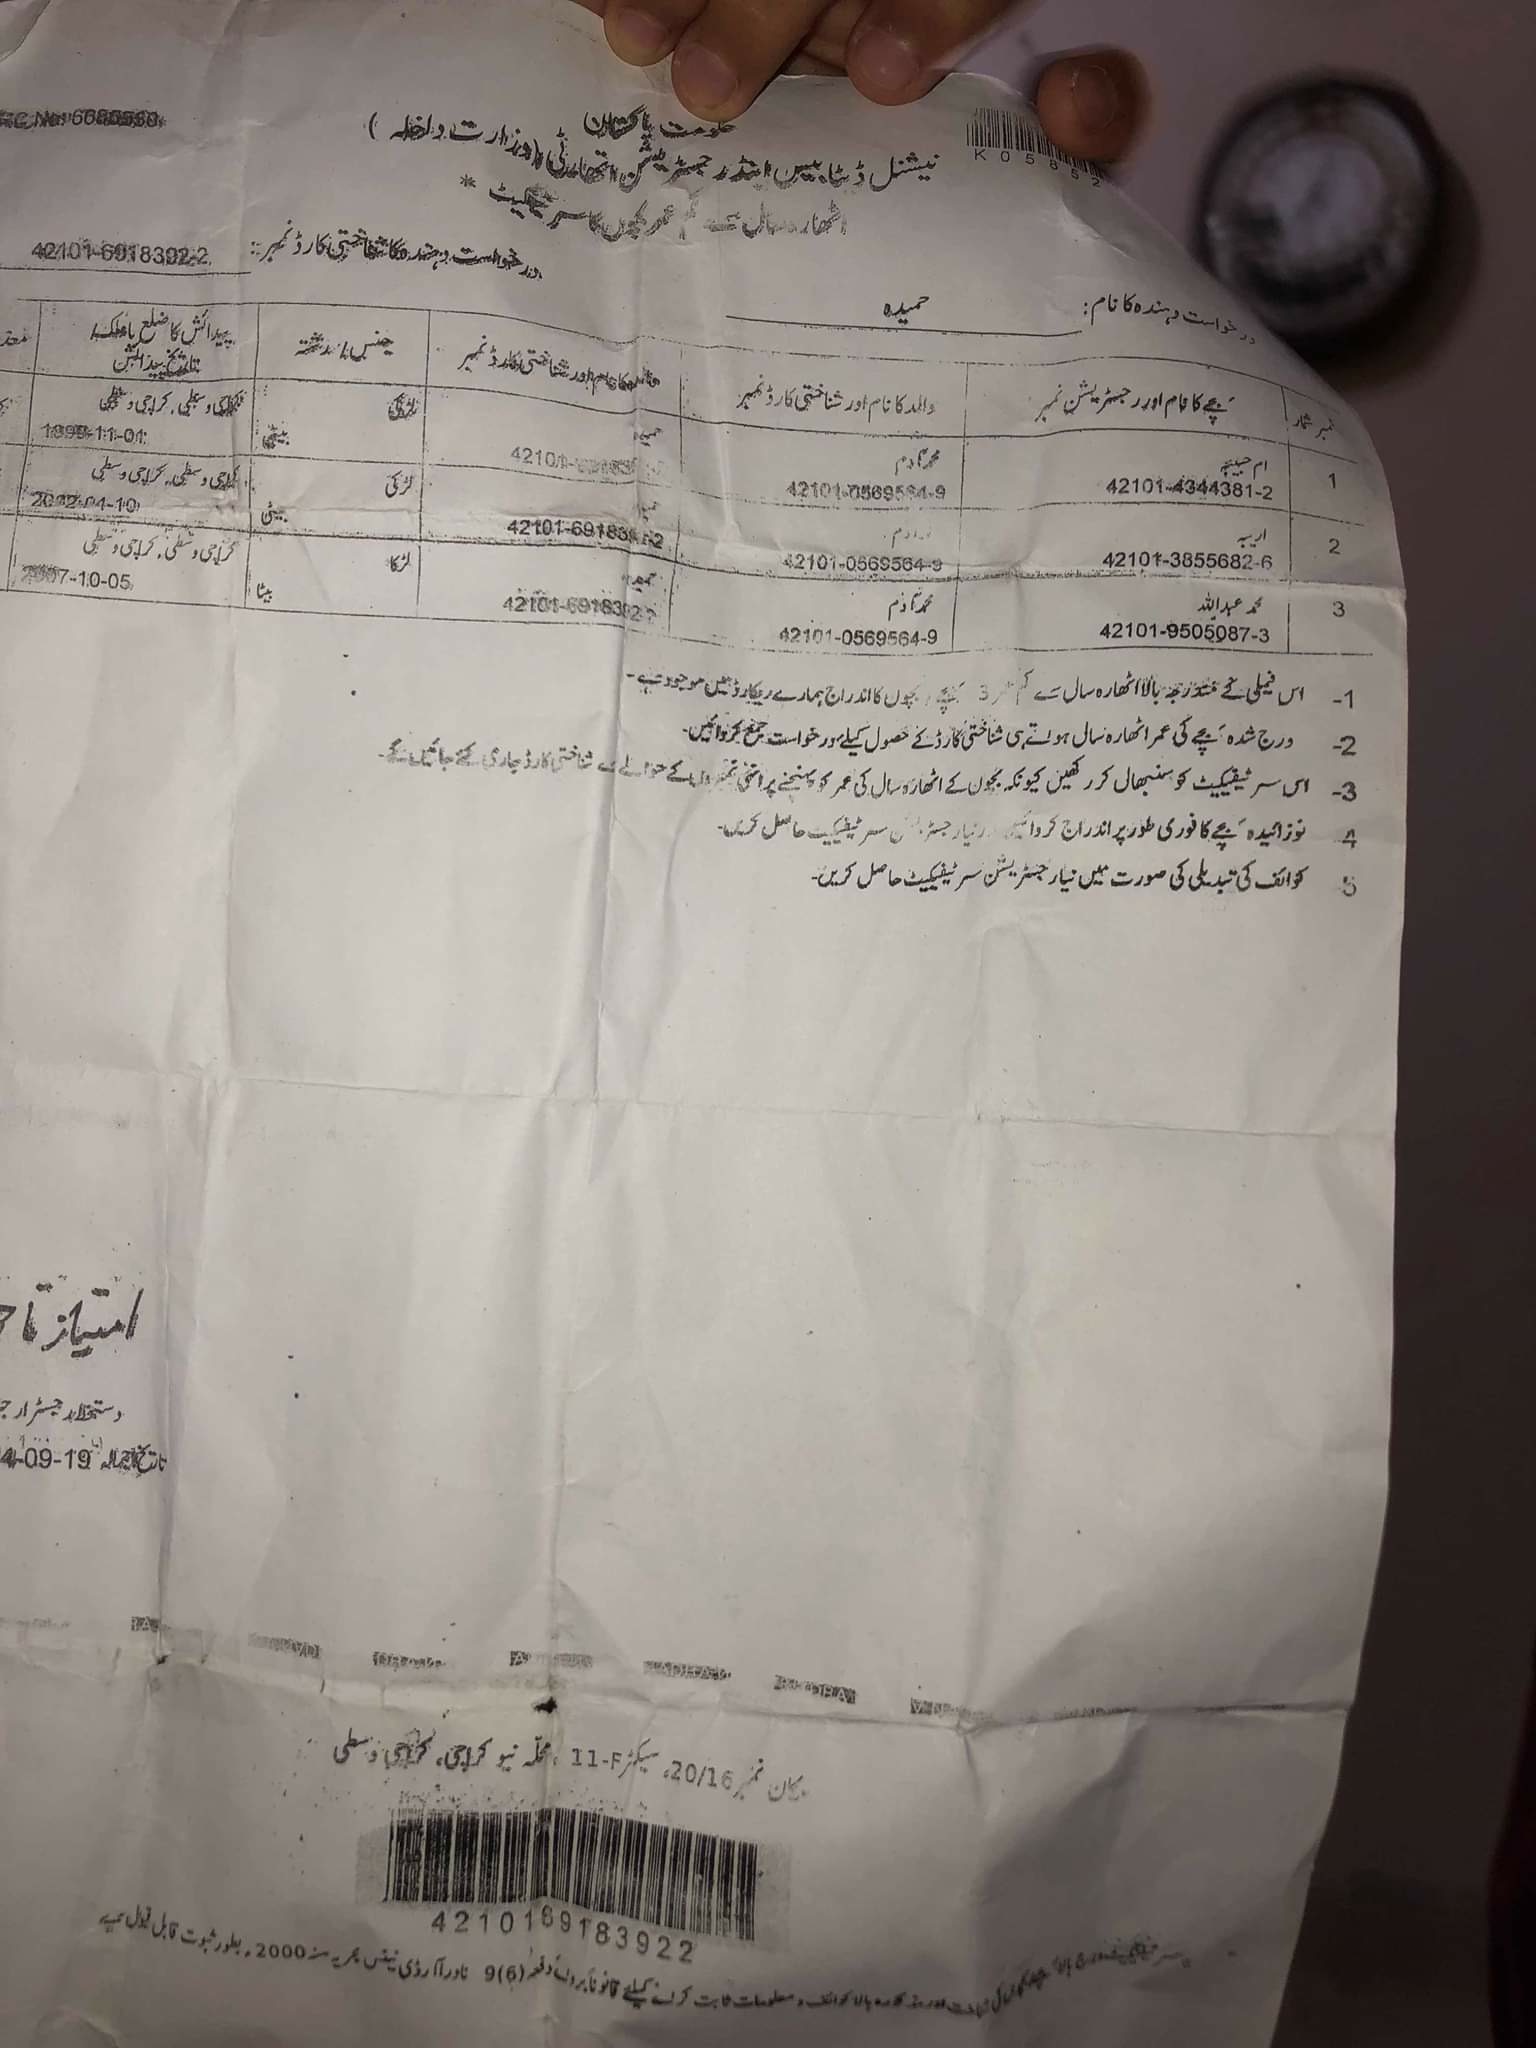 K05852
حکومت پاکستان
نیشنل ڈیٹا بیس اینڈ رجسٹریشن اتھارٹی (وزارت داخلہ)
اٹھارہ سال سے کم عمر بچوں کا سرٹیفکیٹ *
درخواست دہندہ کا شناختی کارڈ نمبر: 42101-6918392-2
درخواست دہندہ کا نام: حمیدہ
نمبر شمار بچے کا نام اور رجسٹریشن نمبر والد کا نام اور شناختی کارڈ نمبر کا نام اور شناختی کارڈ نمبر جنس / رشتہ پیدائش کا ضلع یا ملک/
تاریخ پیدائش
1 ام حبیبہ محمد آدم لڑکی کراچی وسطی، کراچی وسطی
42101-4344381-2 42101-0569564-9 بیٹی
2 اریبہ لڑکی کراچی وسطی، کراچی وسطی
42101-3855682-6 42101-0569564-9 42101-6918392-2 بیٹی
3 محمد عبداللہ محمد آدم لڑکا کراچی وسطی، کراچی وسطی
42101-9505087-3 42101-0569564-9 42101-6918392-2 بیٹا 2007-10-05
1- اس فیملی کے مندرجہ بالا اٹھارہ سال سے کم عمر 3 بچے / بچوں کا اندراج ہمارے ریکارڈ میں موجود ہے۔
2- درج شدہ بچے کی عمر اٹھارہ سال ہوتے ہی شناختی کارڈ کے حصول کیلئے درخواست جمع کروائیں۔
3- اس سرٹیفیکیٹ کو سنبھال کر رکھیں کیونکہ بچوں کے اٹھارہ سال کی عمر کو پہنچنے پر انہی نمبروں کے حوالے سے شناختی کارڈ جاری کئے جائیں گے۔
4- نوزائیدہ بچے کا فوری طور پر اندراج کروائیں اور نیا رجسٹریشن سرٹیفیکیٹ حاصل کریں۔
5- کوائف کی تبدیلی کی صورت میں نیا رجسٹریشن سرٹیفیکیٹ حاصل کریں۔
امتیاز تا
دستخط رجسٹرار
تاریخ اجراء 4-09-19
مکان نمبر 20/16، سیکٹر 11-F، محلّہ نیو کراچی، کراچی وسطی
4210169183922
کوائف و معلومات ثابت کرنے کیلئے قانوناً بروئے دفعہ 9(6) نادرا آرڈی نینس مجریہ سنہ 2000، بطور ثبوت قابل قبول ہے